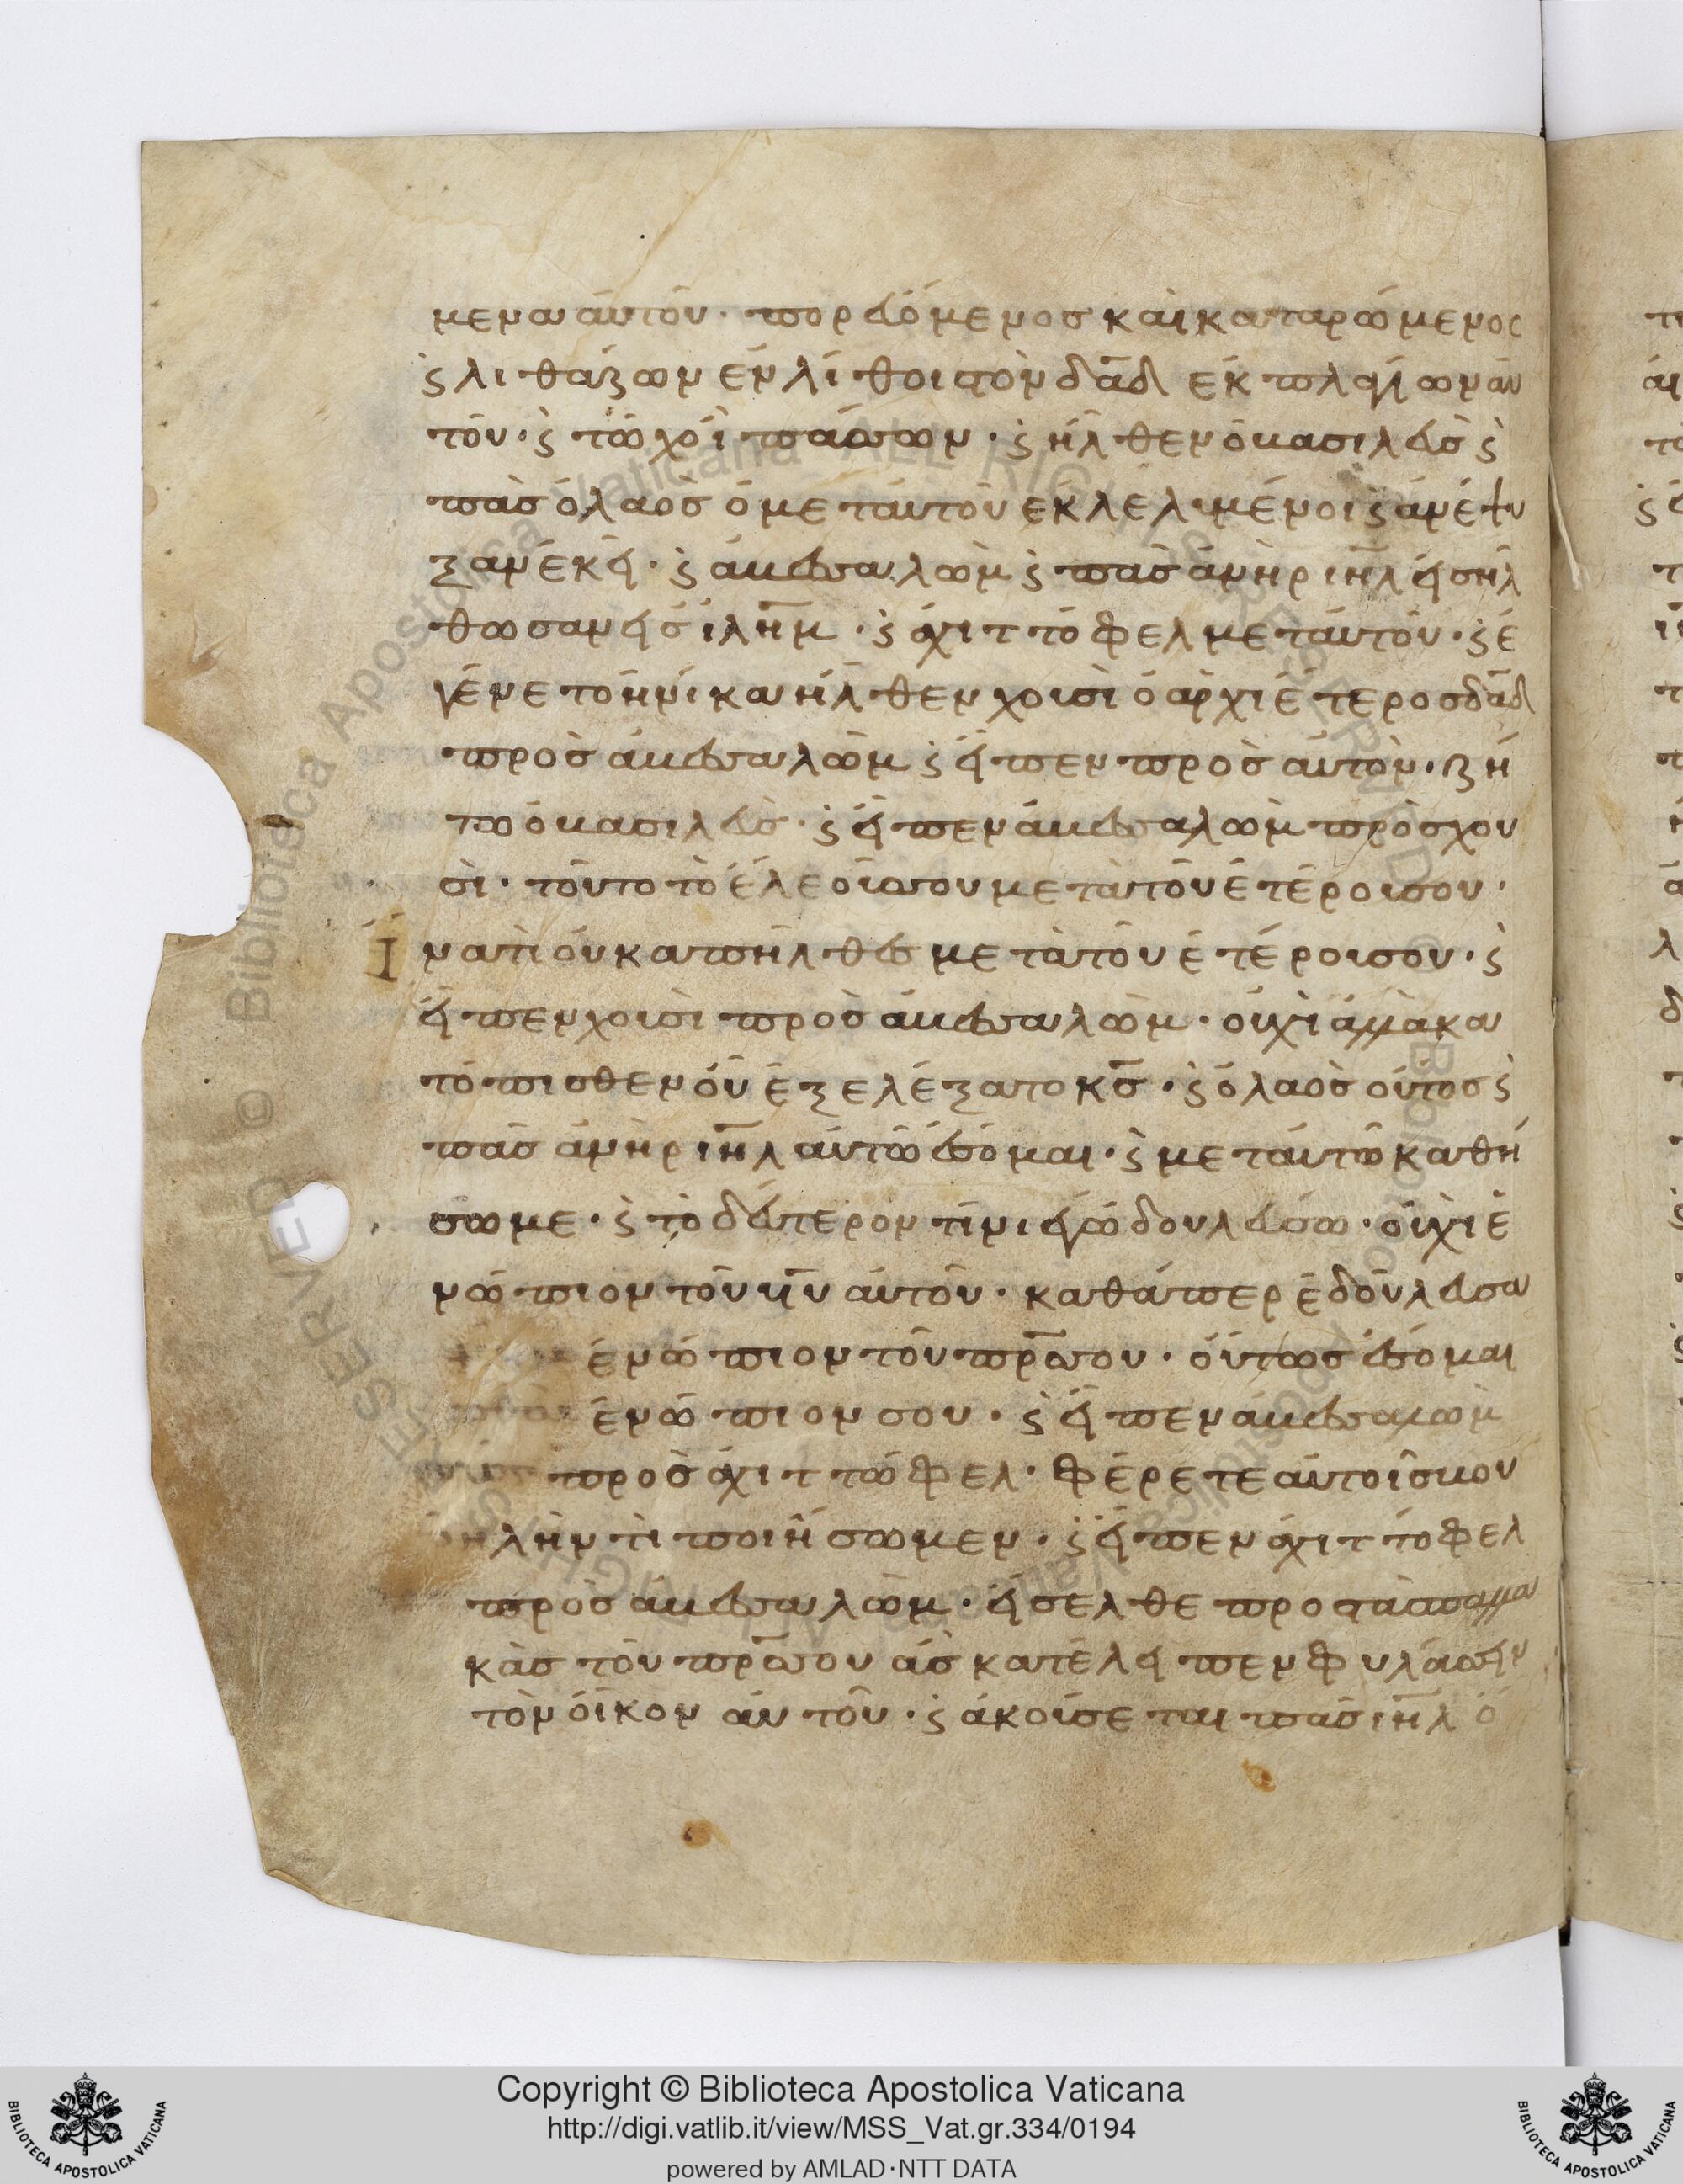 μενα αὐτοῦ· πορευόμενος καὶ καταρώμενος
ϛ λιθάζων ἐν λίθοις τὸν δᾱδ ἐκ πλαγίων αὐ
τοῦ· ϛ τῶ χοῒ πάσσων· ϛ ἦλθεν ὁ βασιλεὺσ ϛ
πᾶσ ὁ λαὸσ ὁ μετ αὐτοῦ ἐκλελυμένοι ϛ ἀνέψυ
ξαν ἐκεῖ· ϛ ἀβεσσαλὼμ ϛ πᾶσ ἀνὴρ ιη̄λ εἰσήλ
θωσαν εἰσ ἰλη̄μ· ϛ ἀχιττόφελ μετ αὐτοῦ· ϛ ἐ
γένετο ἡνίκα ἦλθεν χουσὶ ὁ ἀρχιέτεροσ δᾱδ
πρὸσ ἀβεσσαλὼμ ϛ εἶπεν πρὸσ αὐτὸν· ζή
τω ὁ βασιλεὺσ· ϛ εἶπεν ἀβεσσαλὼμ πρὸσ χου
σὶ· τοῦτο τὸ ἔλεόσ σου μετὰ τοῦ ἑτέρου σου·
Ἱνατὶ οὐκ ἀπῆλθεσ μετὰ τοῦ ἑτέρου σου· ϛ
εἶπεν χουσὶ πρὸσ ἀβεσσαλὼμ· οὐχὶ ἀλλὰ κα
τόπισθεν οὗ ἐξελέξατο κ̄σ· ϛ ὁ λαὸσ οὗτοσ ϛ
πᾶσ ἀνὴρ ιη̄λ αὐτῶ ἔσομαι· ϛ μετ αὐτοῦ καθή
σωμε· ϛ τὸ δεύτερον τίνι ἐγὼ δουλεύσω· οὐχὶ ἐ
νώπιον τοῦ ῡυ αὐτοῦ· καθάπερ ἐδούλευσα
ἐνώπιον τοῦ πρ̄σ σου· οὕτωσ ἔσομαι
ἐνώπιον σου· ϛ εἶπεν ἀβεσσαλὼμ
πρὸσ ἀχιττόφελ· φέρετε αὐτοῖσ βου
λὴν τὶ ποιήσωμεν· ϛ εἶπεν ἀχιττόφελ
πρὸσ ἀβεσσαλὼμ· εἴσελθε προσ τὰσ παλλα
κὰσ τοῦ πρ̄σ σου ἃσ κατέλειπεν φυλάσσειν
τὸν οἶκον αὐτοῦ· ϛ ἀκούσεται πᾶσ ιη̄λ ὅ
BIBLIOTECA APOSTOLICA VATICANA
Copyright © Biblioteca Apostolica Vaticana
http://digi.vatlib.it/view/MSS_Vat.gr.334/0194
powered by AMLAD·NTT DATA
BIBLIOTECA APOSTOLICA VATICANA